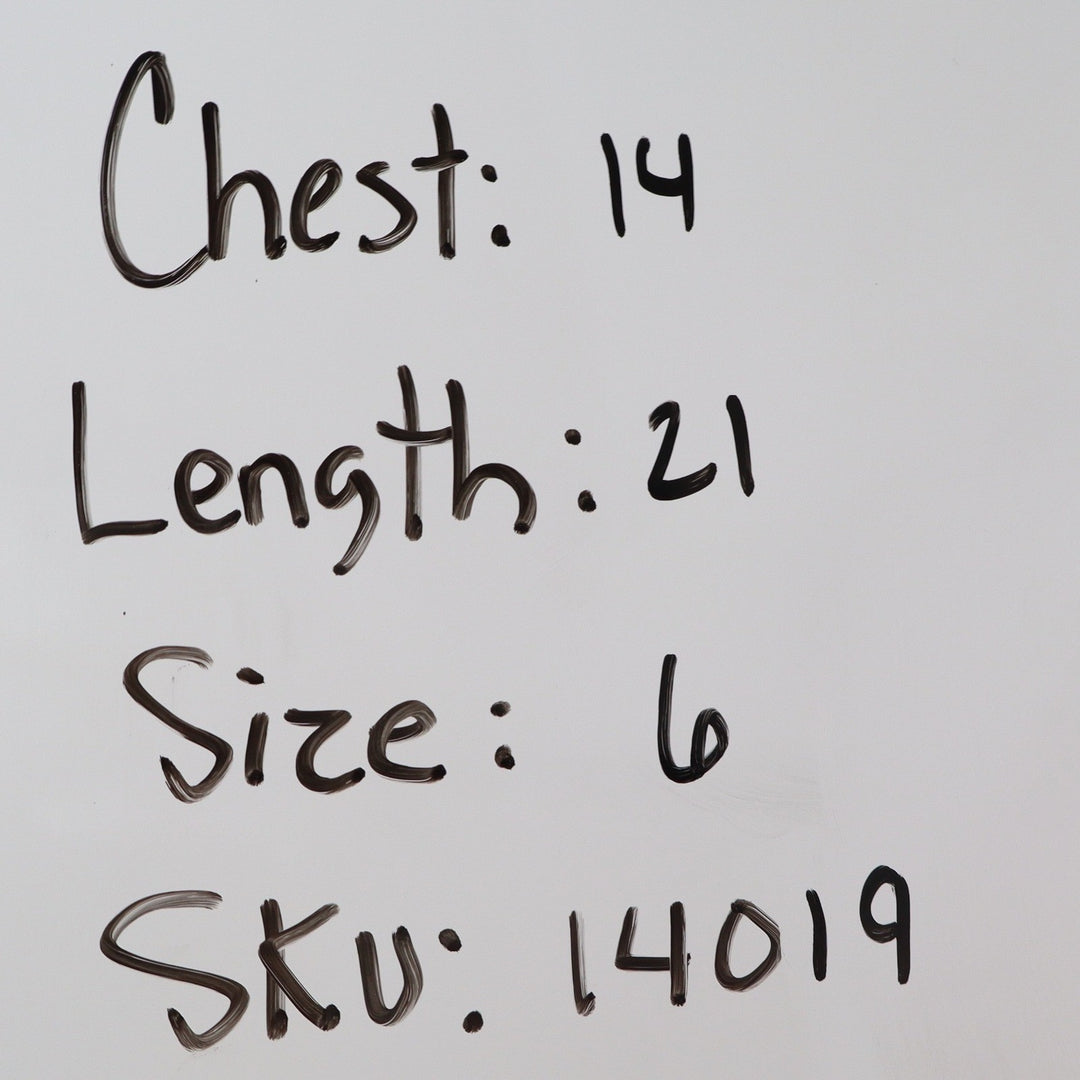 Chest: 14
Length: 21
Size: 6
SKU: 14019